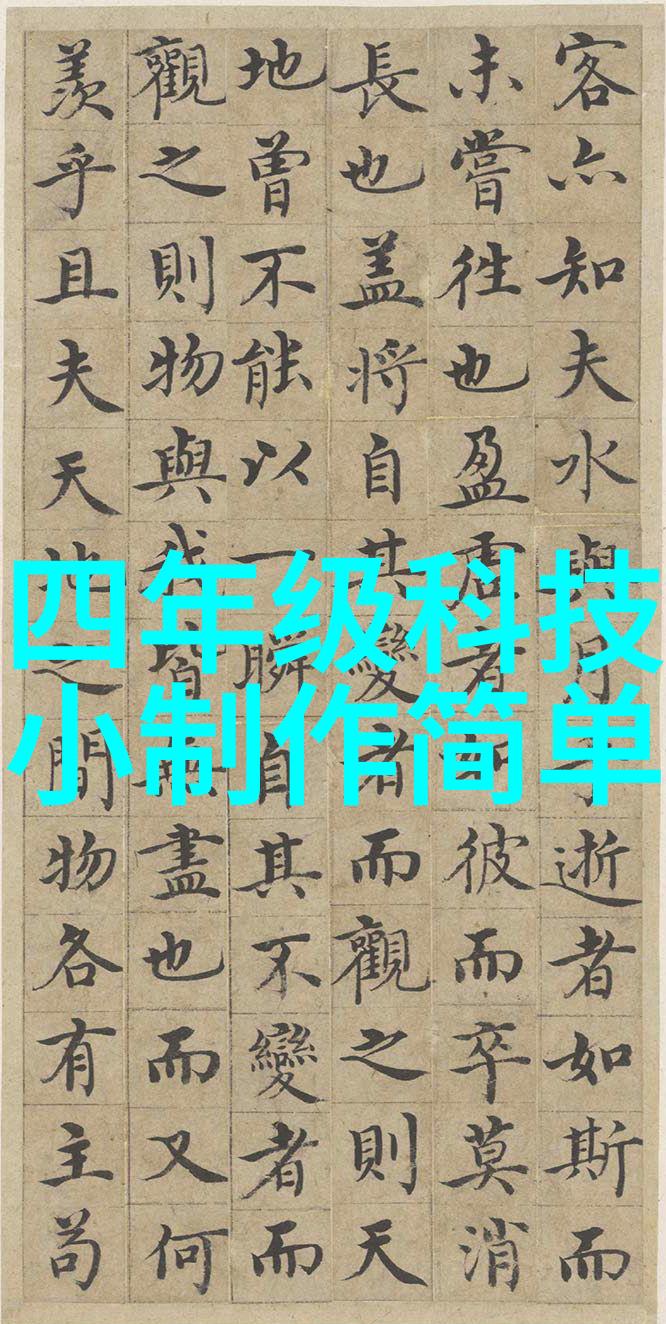 客亦知夫水與月逝者如斯而
未嘗往也盈虛者如彼而卒莫消
長也盖將自其變者而觀之則天
地曾不能以一瞬自其不變者而
觀之則物與我皆無盡也而又何
羨乎且夫天地之間物各有主苟
四年级科技
小制作简单